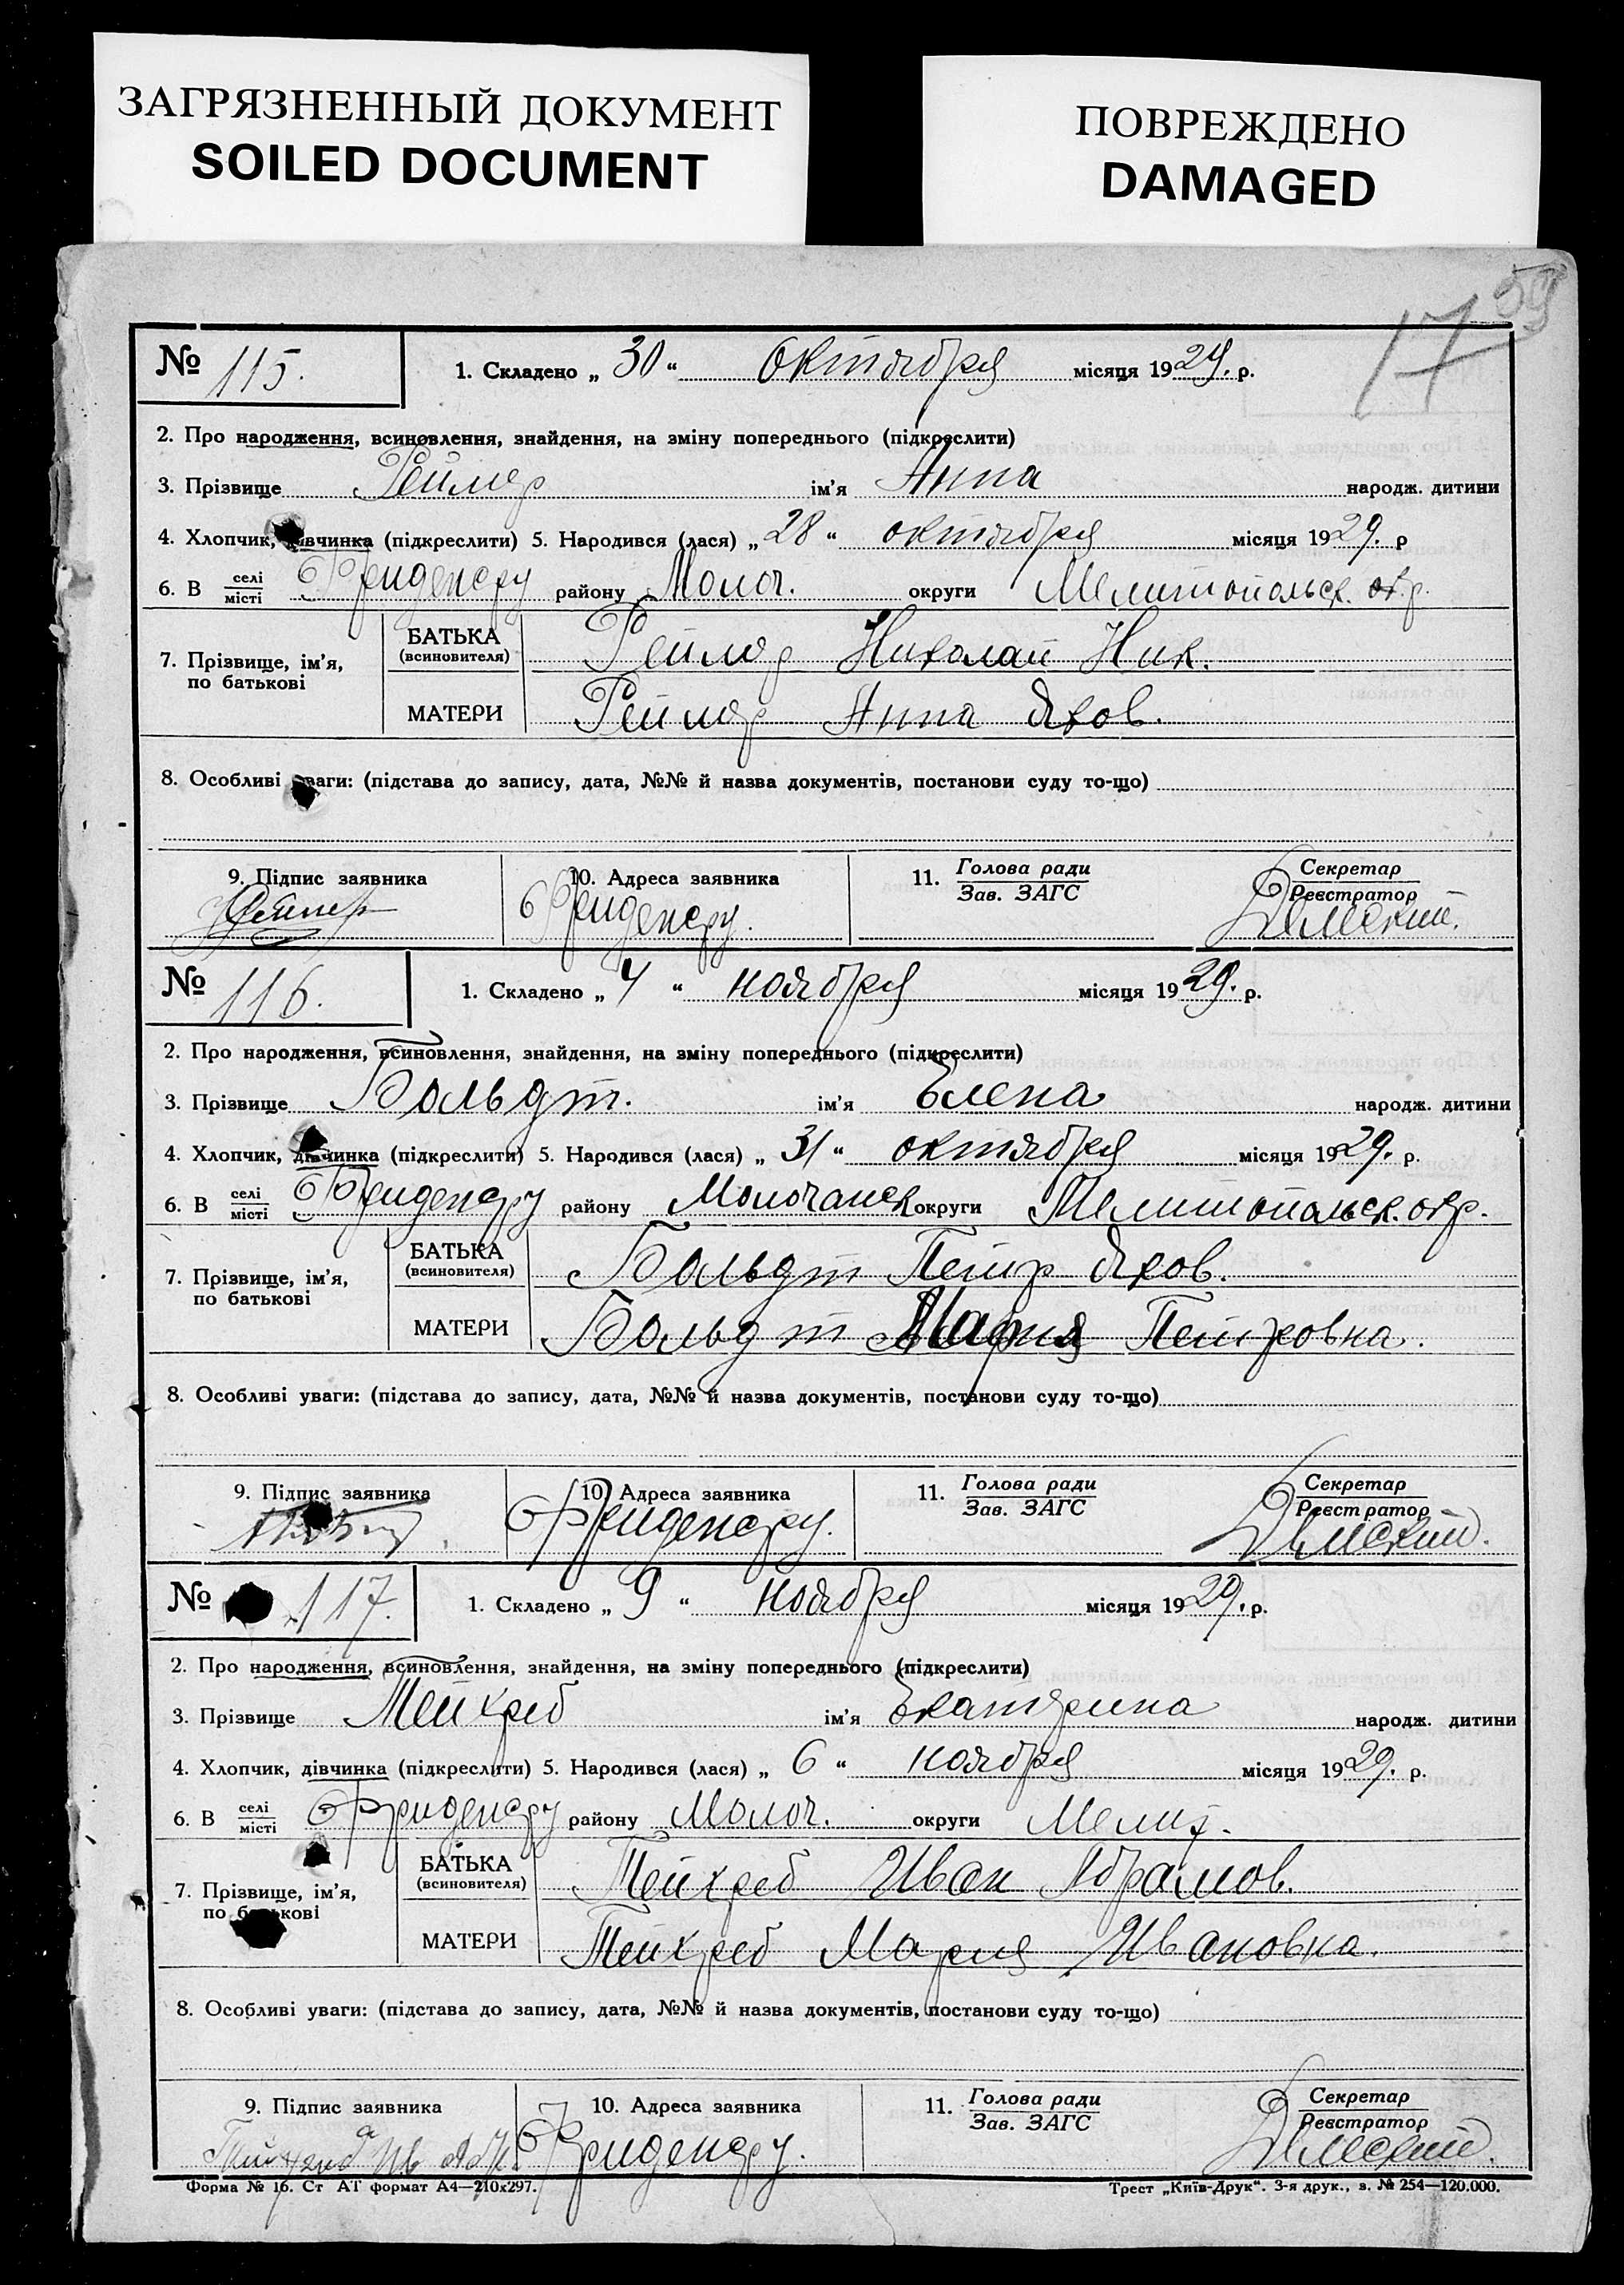 ЗАГРЯЗНЕННЫЙ ДОКУМЕНТ
SOILED DOCUMENT
ПОВРЕЖДЕНО
DAMAGED
59
17
№ 115. 1. Складено „ 30 “ октября місяця 1929. р.
2. Про народження, всиновлення, знайдення, на зміну попереднього (підкреслити)
3. Прізвище Реймер ім’я Анна народж. дитини
4. Хлопчик, дівчинка (підкреслити) 5. Народився (лася) „ 28 “ октября місяця 1929. р
6. В селі/місті Фриденсру району Молоч. округи Мелитопольск. окр.
7. Прізвище, ім’я, по батькові
БАТЬКА (всиновителя) Реймер Николай Ник.
МАТЕРИ Реймер Анна Яков.
8. Особливі уваги: (підстава до запису, дата, №№ й назва документів, постанови суду то-що)
9. Підпис заявника 10. Адреса заявника 11. Голова ради/Зав. ЗАГС Секретар/Реєстратор
Реймер Фриденсру.
№ 116. 1. Складено „ 4 “ ноября місяця 1929. р.
2. Про народження, всиновлення, знайдення, на зміну попереднього (підкреслити)
3. Прізвище Больдт. ім’я Елена народж. дитини
4. Хлопчик, дівчинка (підкреслити) 5. Народився (лася) „ 31 “ октября місяця 1929. р.
6. В селі/місті Фриденсру району Молочанск округи Мелитопольск. окр.
7. Прізвище, ім’я, по батькові
БАТЬКА (всиновителя) Больдт Петр Яков.
МАТЕРИ Больдт Мария Петровна.
8. Особливі уваги: (підстава до запису, дата, №№ й назва документів, постанови суду то-що)
9. Підпис заявника 10. Адреса заявника 11. Голова ради/Зав. ЗАГС Секретар/Реєстратор
Фриденсру.
№ 117. 1. Складено „ 9 “ ноября місяця 1929. р.
2. Про народження, всиновлення, знайдення, на зміну попереднього (підкреслити)
3. Прізвище Тейхреб ім’я Екатерина народж. дитини
4. Хлопчик, дівчинка (підкреслити) 5. Народився (лася) „ 6 “ ноября місяця 1929. р.
6. В селі/місті Фриденсру району Молоч. округи Мелит.
7. Прізвище, ім’я, по батькові
БАТЬКА (всиновителя) Тейхреб Иван Абрамов.
МАТЕРИ Тейхреб Мария Ивановна.
8. Особливі уваги: (підстава до запису, дата, №№ й назва документів, постанови суду то-що)
9. Підпис заявника 10. Адреса заявника 11. Голова ради/Зав. ЗАГС Секретар/Реєстратор
Фриденсру.
Форма № 16. Ст АТ формат А4—210х297. Трест „Київ-Друк“. 3-я друк., з. № 254—120.000.